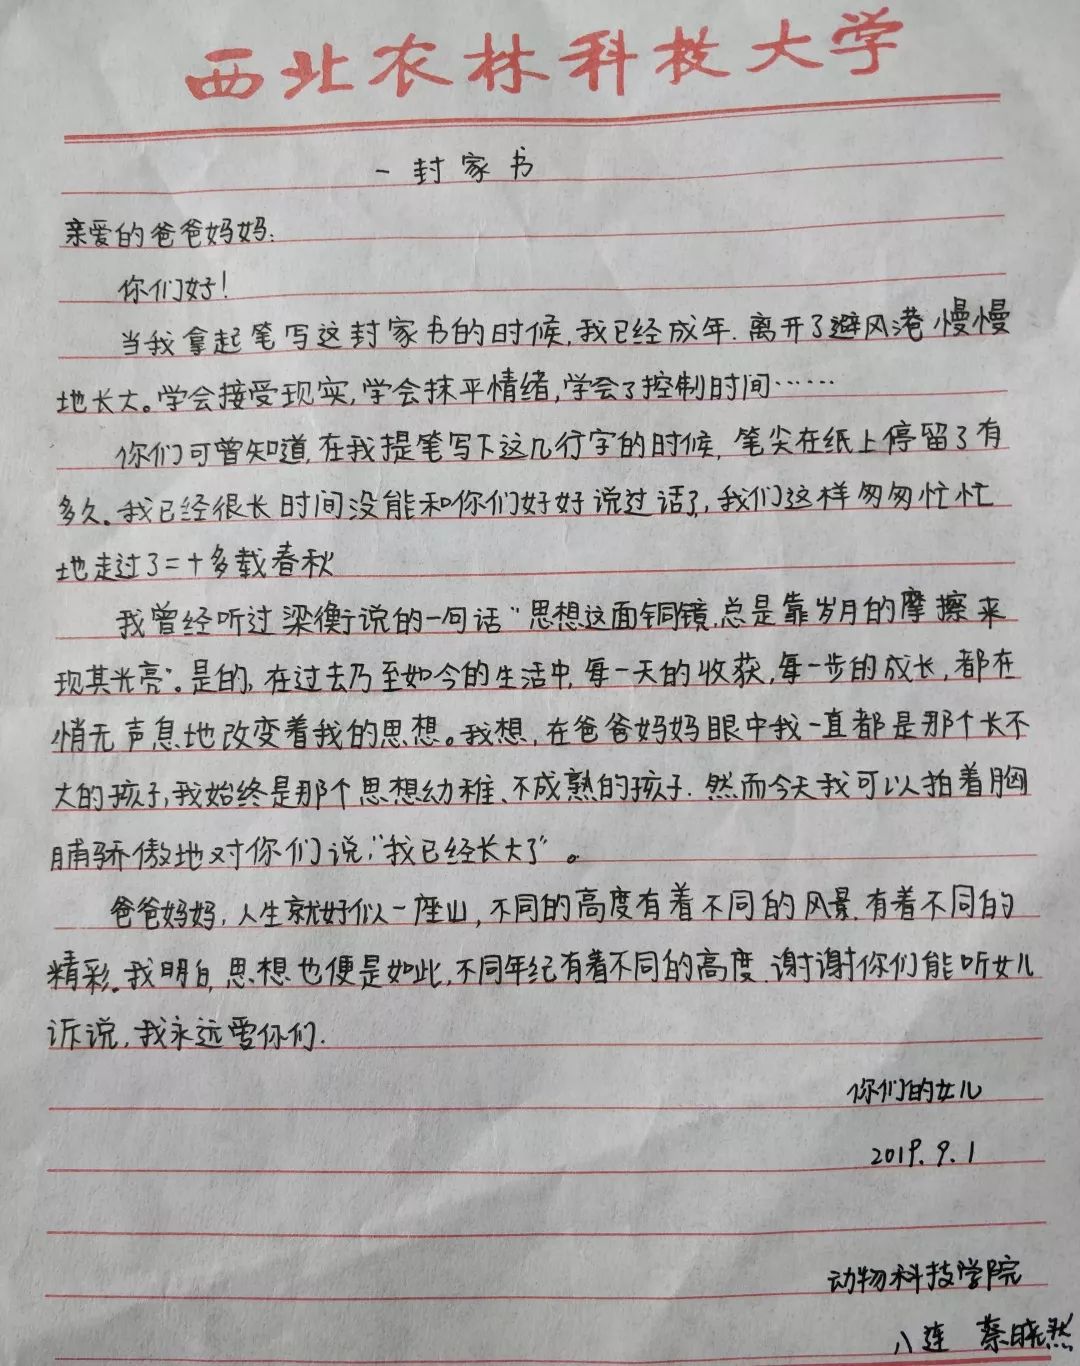 西北农林科技大学
一封家书
亲爱的爸爸妈妈:
你们好!
当我拿起笔写这封家书的时候,我已经成年.离开了避风港,慢慢
地长大。学会接受现实,学会抹平情绪,学会了控制时间……
你们可曾知道,在我提笔写下这几行字的时候,笔尖在纸上停留了有
多久。我已经很长时间没能和你们好好说过话了,我们这样匆匆忙忙
地走过了二十多载春秋
我曾经听过梁衡说的一句话"思想这面铜镜,总是靠岁月的摩擦来
现其光亮"。是的,在过去乃至如今的生活中,每一天的收获,每一步的成长,都在
悄无声息地改变着我的思想。我想,在爸爸妈妈眼中我一直都是那个长不
大的孩子,我始终是那个思想幼稚、不成熟的孩子.然而今天我可以拍着胸
脯骄傲地对你们说,"我已经长大了"。
爸爸妈妈,人生就好似一座山,不同的高度有着不同的风景.有着不同的
精彩。我明白,思想也便是如此,不同年纪有着不同的高度.谢谢你们能听女儿
诉说,我永远爱你们.
你们的女儿
2019.9.1
动物科技学院
八连 蔡晓然